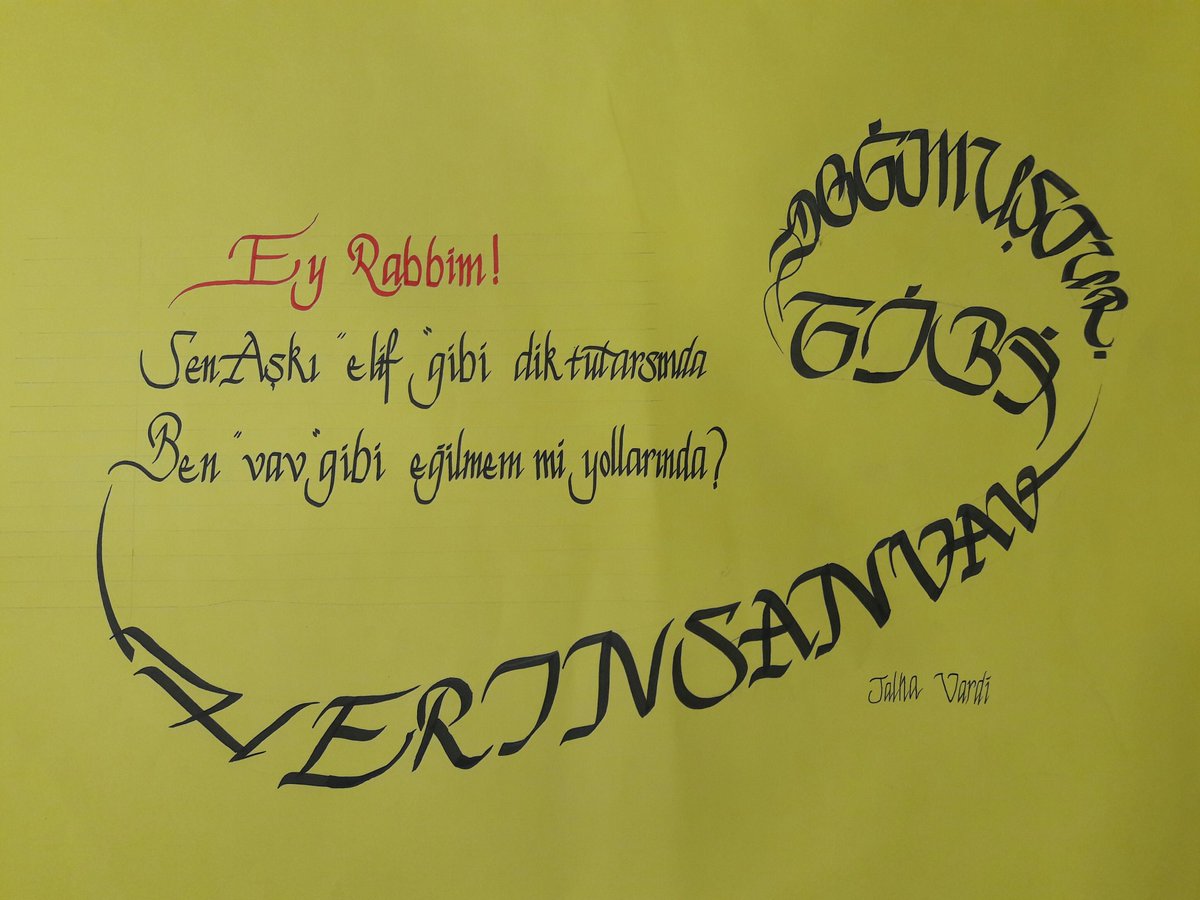 Ey Rabbim!
Sen Aşkı "elif" gibi dik tutarsında
Ben "vav" gibi eğilmem mi yollarında?
HER INSAN VAV
GİBİ
DOĞMUŞTUR.
Talha Vardi